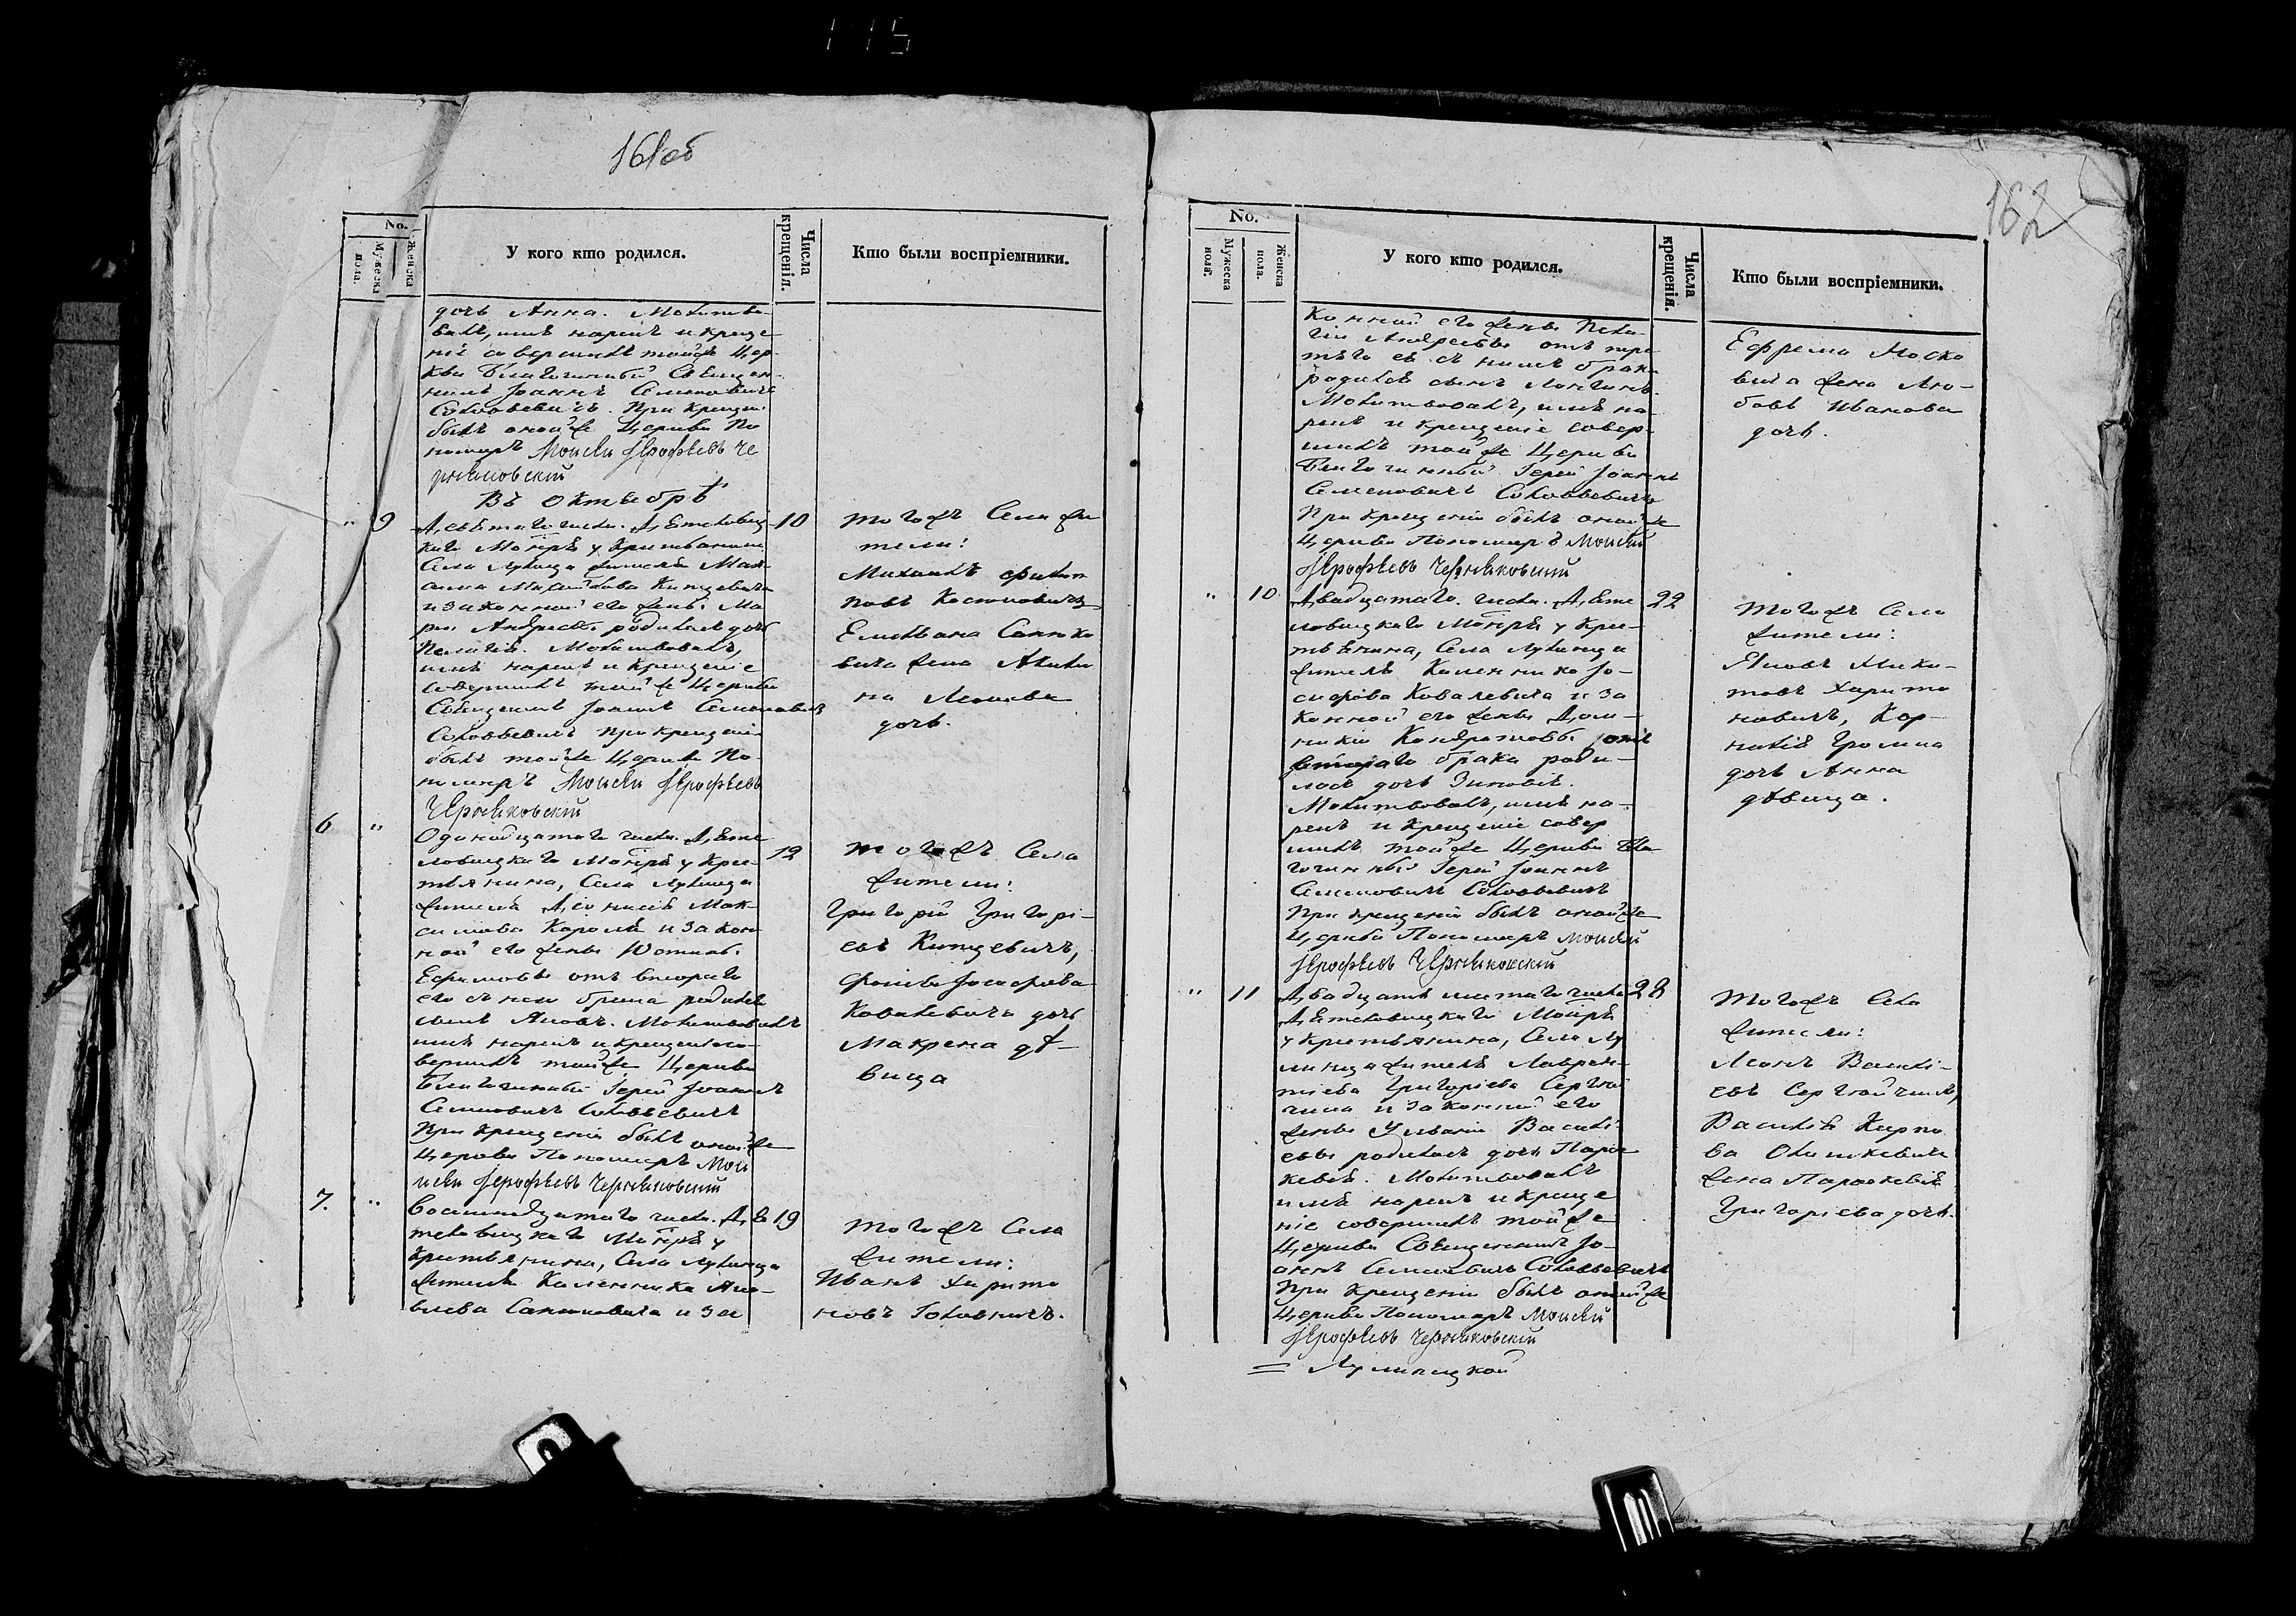 115
161об
No.
Мужеска пола.
Женска
У кого кто родился.
Числа крещенія.
Кто были воспріемники.
дочь Анна. Молитво-
валъ, имя нарекъ и креще
ніе совершилъ тойже Цер-
кви Благочинный Священ-
никъ Іоаннъ Семеновичъ
Соловьевичъ. При крещен.
былъ онойже Церкви По
номарь Моисей Іерофѣевъ Че
рняковскій
Въ Октябрѣ
" 9 Девятаго числа. Дятеловиц- 10
каго Монтря у Крестьянина
Села Лулинца жителя Мак-
сима Михайлова Кипцевича
и законной его жены Ма
ріи Андреевы родилась дочь
Пелагія. Молитвовалъ,
имя нарекъ и крещеніе
совершилъ тойже Церкви
Священникъ Іоаннъ Семеновичъ
Соловьевичъ При крещеніи
былъ тойже Церкви По-
номарь Моисей Іерофѣевъ
Черняковскій
тогожъ Села жи
тели:
Михаилъ Филип
повъ Костюковичъ
Емельяна Санюко
вича жена Акили
на Леонова
дочь.
6 " Одинадцатаго числа. Дяте
ловицкаго Монтря у Крес- 12
тьянина, Села Лулинца
жителя Діонисія Мак-
симова Короля и закон
ной его жены
Ефимовы отъ втораго
его съ нею брака родился
сынъ Яковъ. Молитвовалъ
имя нарекъ и крещеніе со-
вершилъ тойже Церкви
Благочинный Іерей Іоаннъ
Семеновичъ Соловьевичъ
При крещеніи былъ онойже
Церкви Пономарь Мои
исей Іерофѣевъ Черняковскій
тогожъ Села
жители:
Григорій Григорі-
евъ Кипцевичъ,
Іосифова
Ковалевича дочь
Макрена дѣ-
вица
7. " Восемнадцатаго числа. Дя 19
теловицкаго Монтря у
Крестьянина, Села Лулинца
жителя Калинника Яко-
влева Санюковича и за
тогожъ Села
жители:
Иванъ Харито
новъ Головничъ.
162
No.
Мужеска пола.
Женска пола.
У кого кто родился.
Числа крещенія.
Кто были воспріемники.
конной его жены Пела-
гіи Андреевы отъ тре
тяго ея съ нимъ брака
родился сынъ Лонгинъ.
Молитвовалъ, имя на-
рекъ и крещеніе совер-
шилъ тойже Церкви
Благочинный Іерей Іоаннъ
Семеновичъ Соловьевичъ
При крещеніи былъ онойже
Церкви Пономарь Моисей
Іерофѣевъ Черняковскій
Ефрема Моско
вича жена Лю-
бовь Иванова
дочь.
" 10 Двадцатаго. числа. Дяте 22
ловицкаго Монтря у Крес-
тьянина, Села Лулинца
жителя Калинника Іо-
сифова Ковалевича и за
конной его жены Дом-
никіи Кондратовы отъ
втораго брака роди-
лась дочь Зиновія.
Молитвовалъ, имя на-
рекъ и крещеніе совер
шилъ тойже Церкви Бла-
гочинный Іерей Іоаннъ
Семеновичъ Соловьевичъ
При крещеніи былъ онойже
Церкви Пономарь Моисей
Іерофѣевъ Черняковскій
тогожъ Села
жители:
Яковъ Мики-
товъ Харито
новичъ, Кор-
нилія Громца
дочь Анна
дѣвица.
" 11 Двадцать шестаго числа 28
Дятеловицкаго Монтря
у Крестьянина, Села Лу
линца жителя Лаврен-
тіева Григоріева Сергей
чика и законной его
жены Ульяніи Василі-
евы родилась дочь Парас
кевія. Молитвовалъ
имя нарекъ и креще
ніе совершилъ тойже
Церкви Священникъ Іо-
аннъ Семеновичъ Соловьевичъ
При крещеніи былъ онойже
Церкви Пономарь Моисей
Іерофѣевъ Черняковскій
= Лулинецкой
тогожъ Села
жители:
Леонъ Василі-
евъ Сергейчикъ,
Василія Карпо
ва Олишкевича
жена Параскевія
Григоріева дочь.